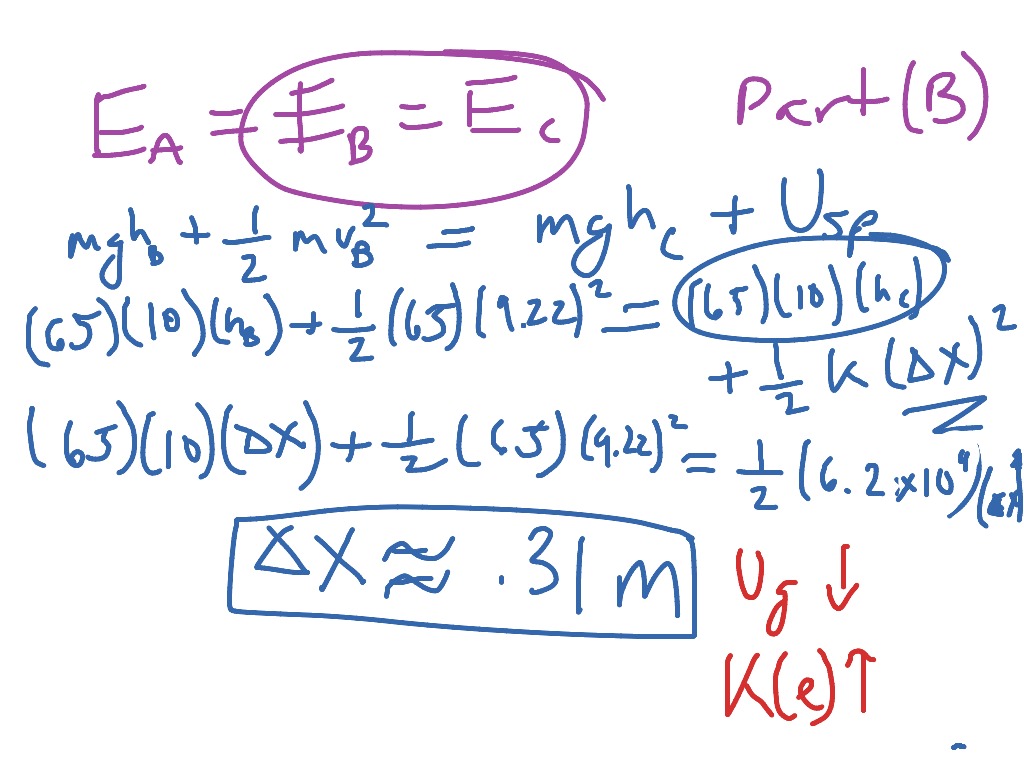 E_A = E_B = E_C Part (B)
mgh_B + 1/2 mv_B^2 = mgh_C + U_sp
(65)(10)(h_B) + 1/2 (65)(9.22)^2 = (65)(10)(h_C)
+ 1/2 K (ΔX)^2
(65)(10)(ΔX) + 1/2 (65)(9.22)^2 = 1/2 (6.2 x 10^4)(ΔX)^2
ΔX ≈ .31 m
U_g ↓
K(e) ↑